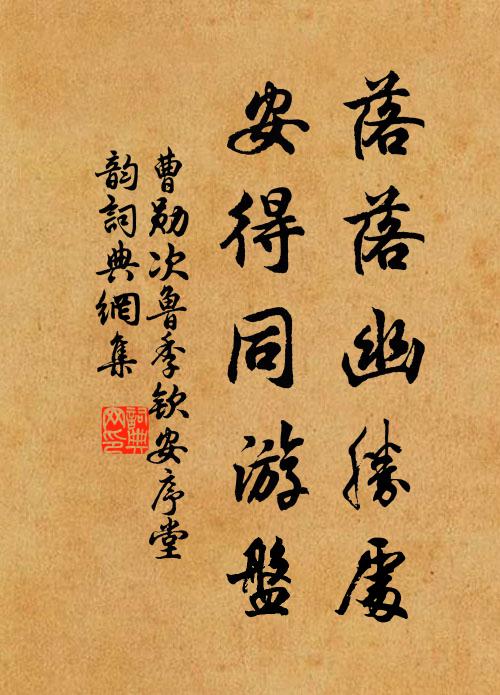 落落幽勝處
安得同游盤
曹勛次魯季欽安序堂
韵詞典網集
詞典网印